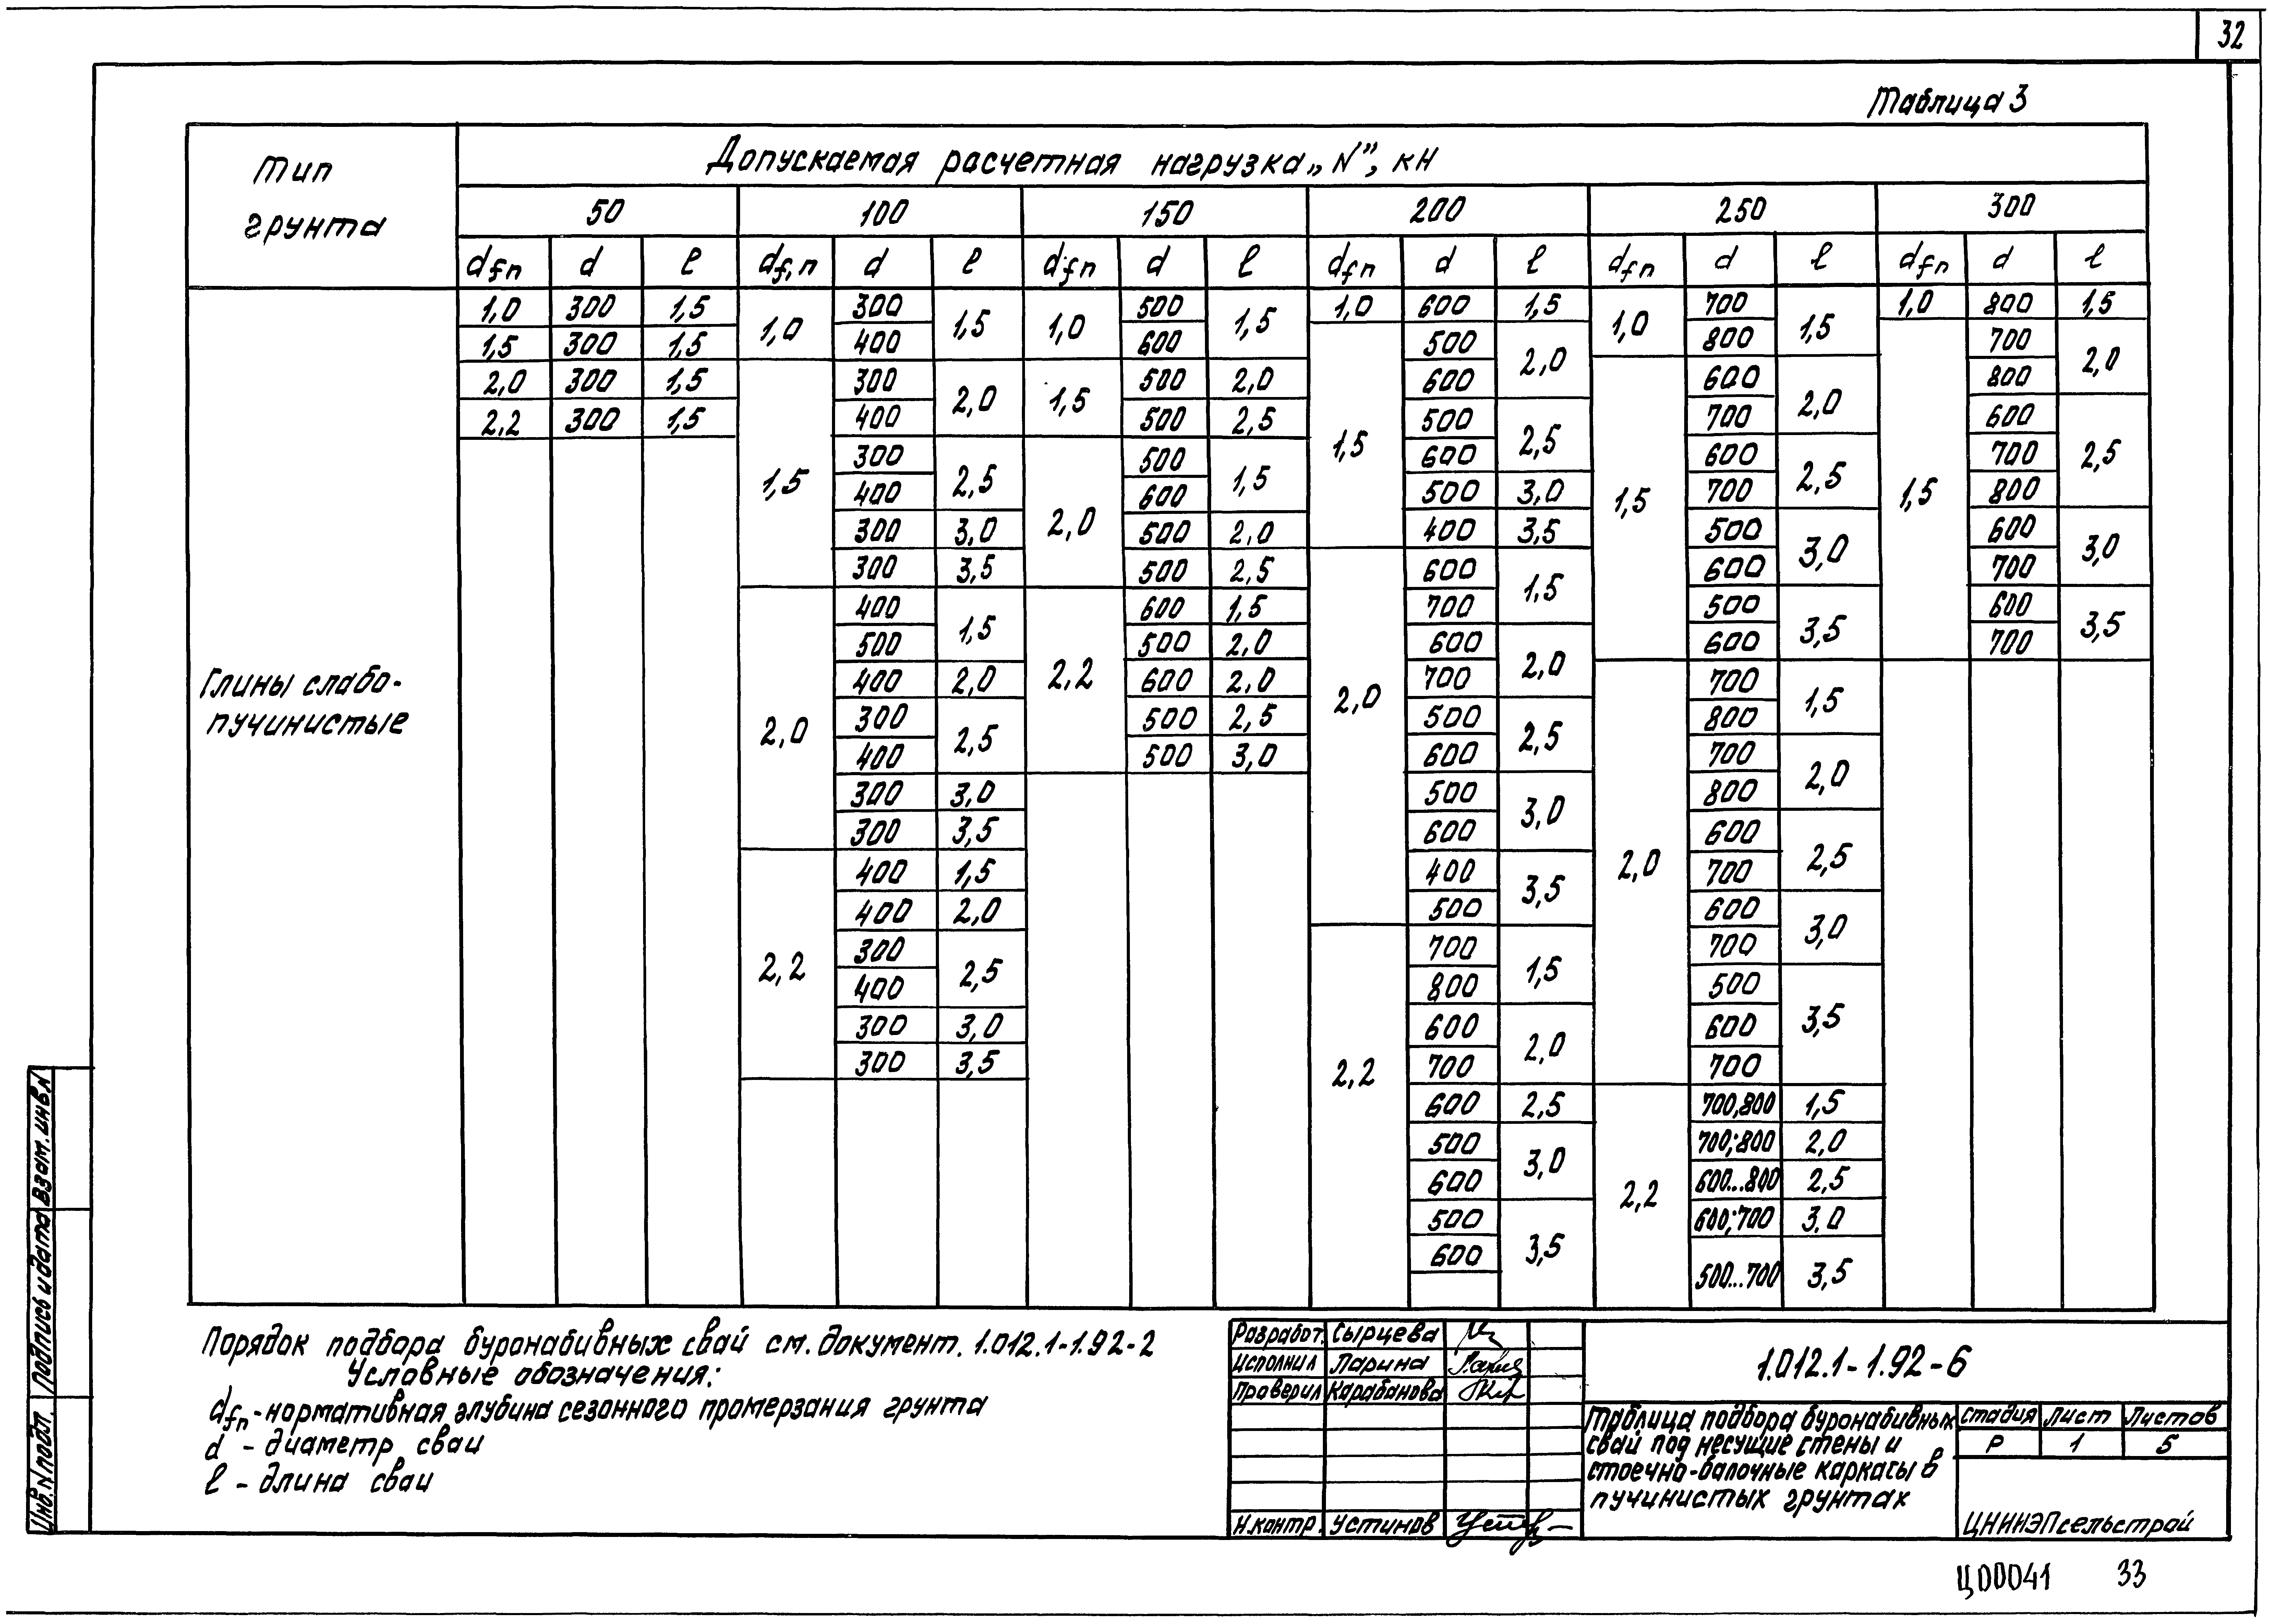 32
Таблица 3
Тип грунта
Допускаемая расчетная нагрузка „N”, кН
50 100 150 200 250 300
dfn d ℓ df,n d ℓ dfn d ℓ dfn d ℓ dfn d ℓ dfn d ℓ
Глины слабо-
пучинистые
1,0 300 1,5
1,5 300 1,5
2,0 300 1,5
2,2 300 1,5
1,0 300 1,5
400
1,5 300 2,0
400
300 2,5
400
300 3,0
300 3,5
2,0 400 1,5
500
400 2,0
300 2,5
400
300 3,0
300 3,5
2,2 400 1,5
400 2,0
300 2,5
400
300 3,0
300 3,5
1,0 500 1,5
600
1,5 500 2,0
500 2,5
2,0 500 1,5
600
500 2,0
500 2,5
2,2 600 1,5
500 2,0
600 2,0
500 2,5
500 3,0
1,0 600 1,5
1,5 500 2,0
600
500 2,5
600
500 3,0
400 3,5
2,0 600 1,5
700
600 2,0
700
500 2,5
600
500 3,0
600
400 3,5
500
2,2 700 1,5
800
600 2,0
700
600 2,5
500 3,0
600
500 3,5
600
1,0 700 1,5
800
1,5 600 2,0
700
600 2,5
700
500 3,0
600
500 3,5
600
2,0 700 1,5
800
700 2,0
800
600 2,5
700
600 3,0
700
500 3,5
600
700
2,2 700,800 1,5
700;800 2,0
600...800 2,5
600;700 3,0
500...700 3,5
1,0 800 1,5
1,5 700 2,0
800
600 2,5
700
800
600 3,0
700
600 3,5
700
Порядок подбора буронабивных свай см. документ. 1.012.1-1.92-2
Условные обозначения:
dfn - нормативная глубина сезонного промерзания грунта
d - диаметр сваи
ℓ - длина сваи
Разработ. Сырцева
Исполнил Ларина
Проверил Карабанова
Н.контр. Устинов
1.012.1-1.92-6
Таблица подбора буронабивных
свай под несущие стены и
стоечно-балочные каркасы в
пучинистых грунтах
Стадия Лист Листов
Р 1 5
ЦНИИЭПсельстрой
Инв.N подл. Подпись и дата Взам.инв.N
Ц00041 33